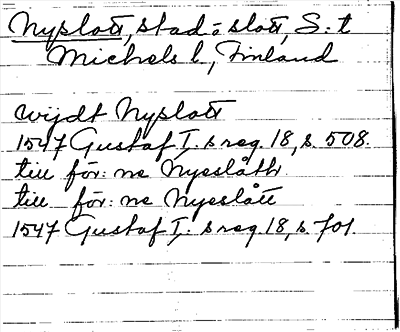 Nyslott, stad o slott, S:t
Michels l, Finland
wijdt Nyslott
1547 Gustaf I:s reg. 18, s. 508.
till för:ne Nyeslåth
till för:ne Nyeslått
1547 Gustaf I:s reg. 18, s. 701.